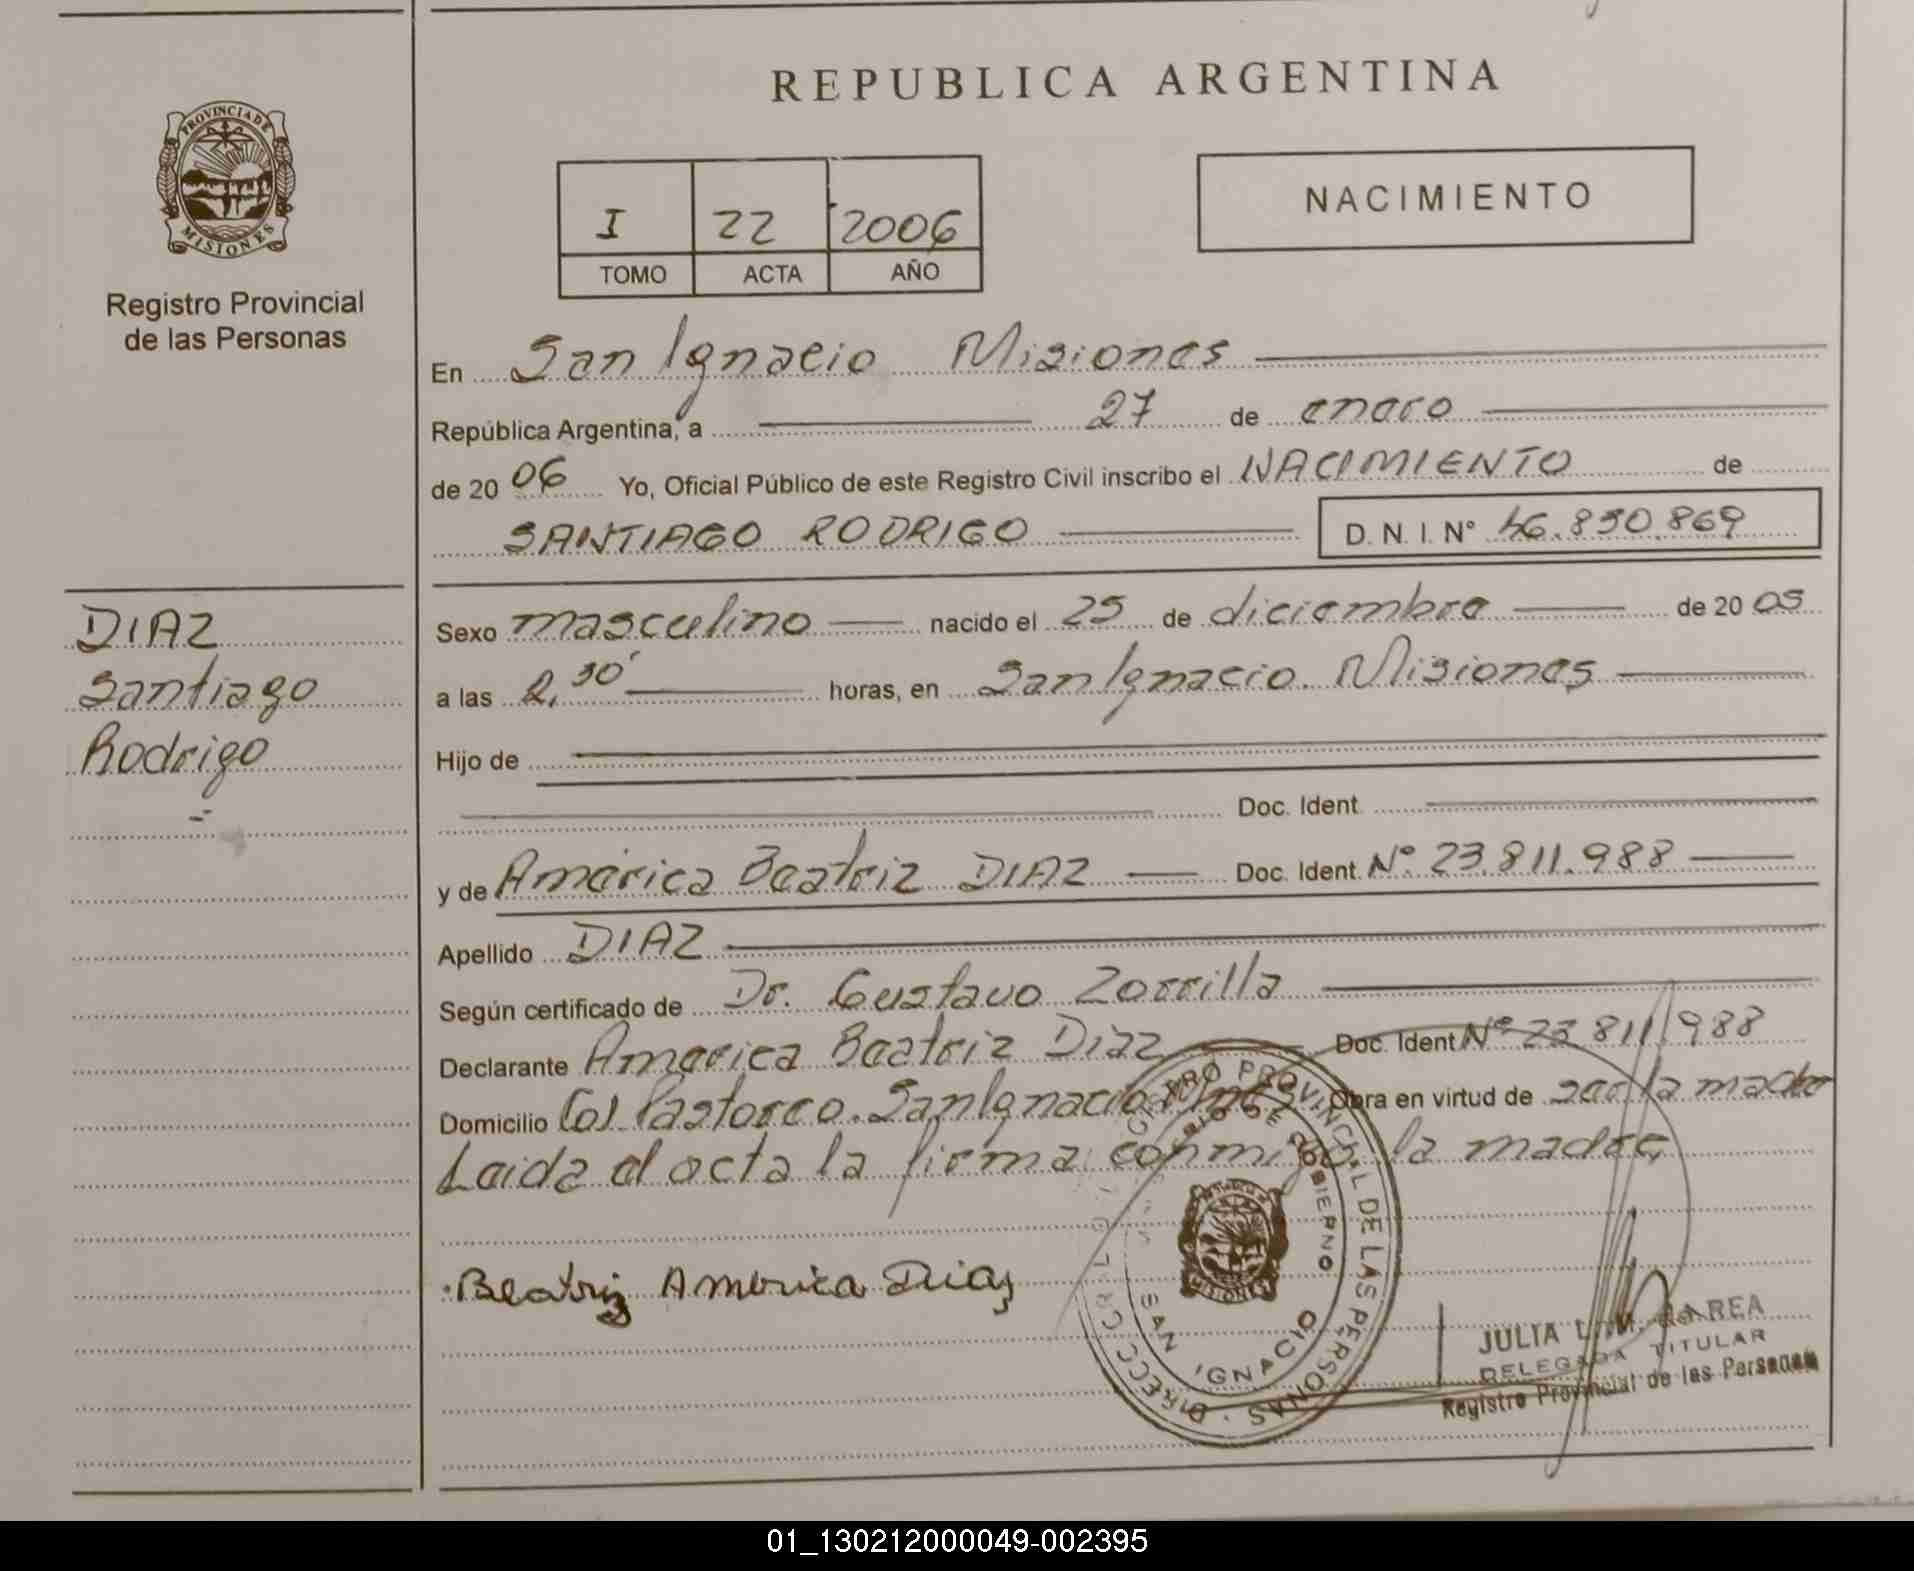 REPUBLICA ARGENTINA
PROVINCIA DE MISIONES
Registro Provincial
de las Personas
I 22 2006
TOMO ACTA AÑO
NACIMIENTO
En San Ignacio Misiones
República Argentina, a 27 de enero
de 2006 Yo, Oficial Público de este Registro Civil inscribo el NACIMIENTO de
SANTIAGO RODRIGO D. N. I. N° 46.830.869
DIAZ
Santiago
Rodrigo
Sexo masculino nacido el 25 de diciembre de 2005
a las 2,30' horas, en San Ignacio. Misiones
Hijo de
Doc. Ident.
y de América Beatriz DIAZ Doc. Ident. N° 23.811.988
Apellido DIAZ
Según certificado de Dr. Gustavo Zorrilla
Declarante America Beatriz Diaz Doc. Ident N° 23.811.988
Domicilio Col Pastoreo. San Ignacio Obra en virtud de ser la madre
Leida el acta la firma conmigo la madre
Beatriz America Diaz
REGISTRO PROVINCIAL DE LAS PERSONAS
SAN IGNACIO
JULIA
DELEGADA TITULAR
Registro Provincial de las Personas
01_130212000049-002395